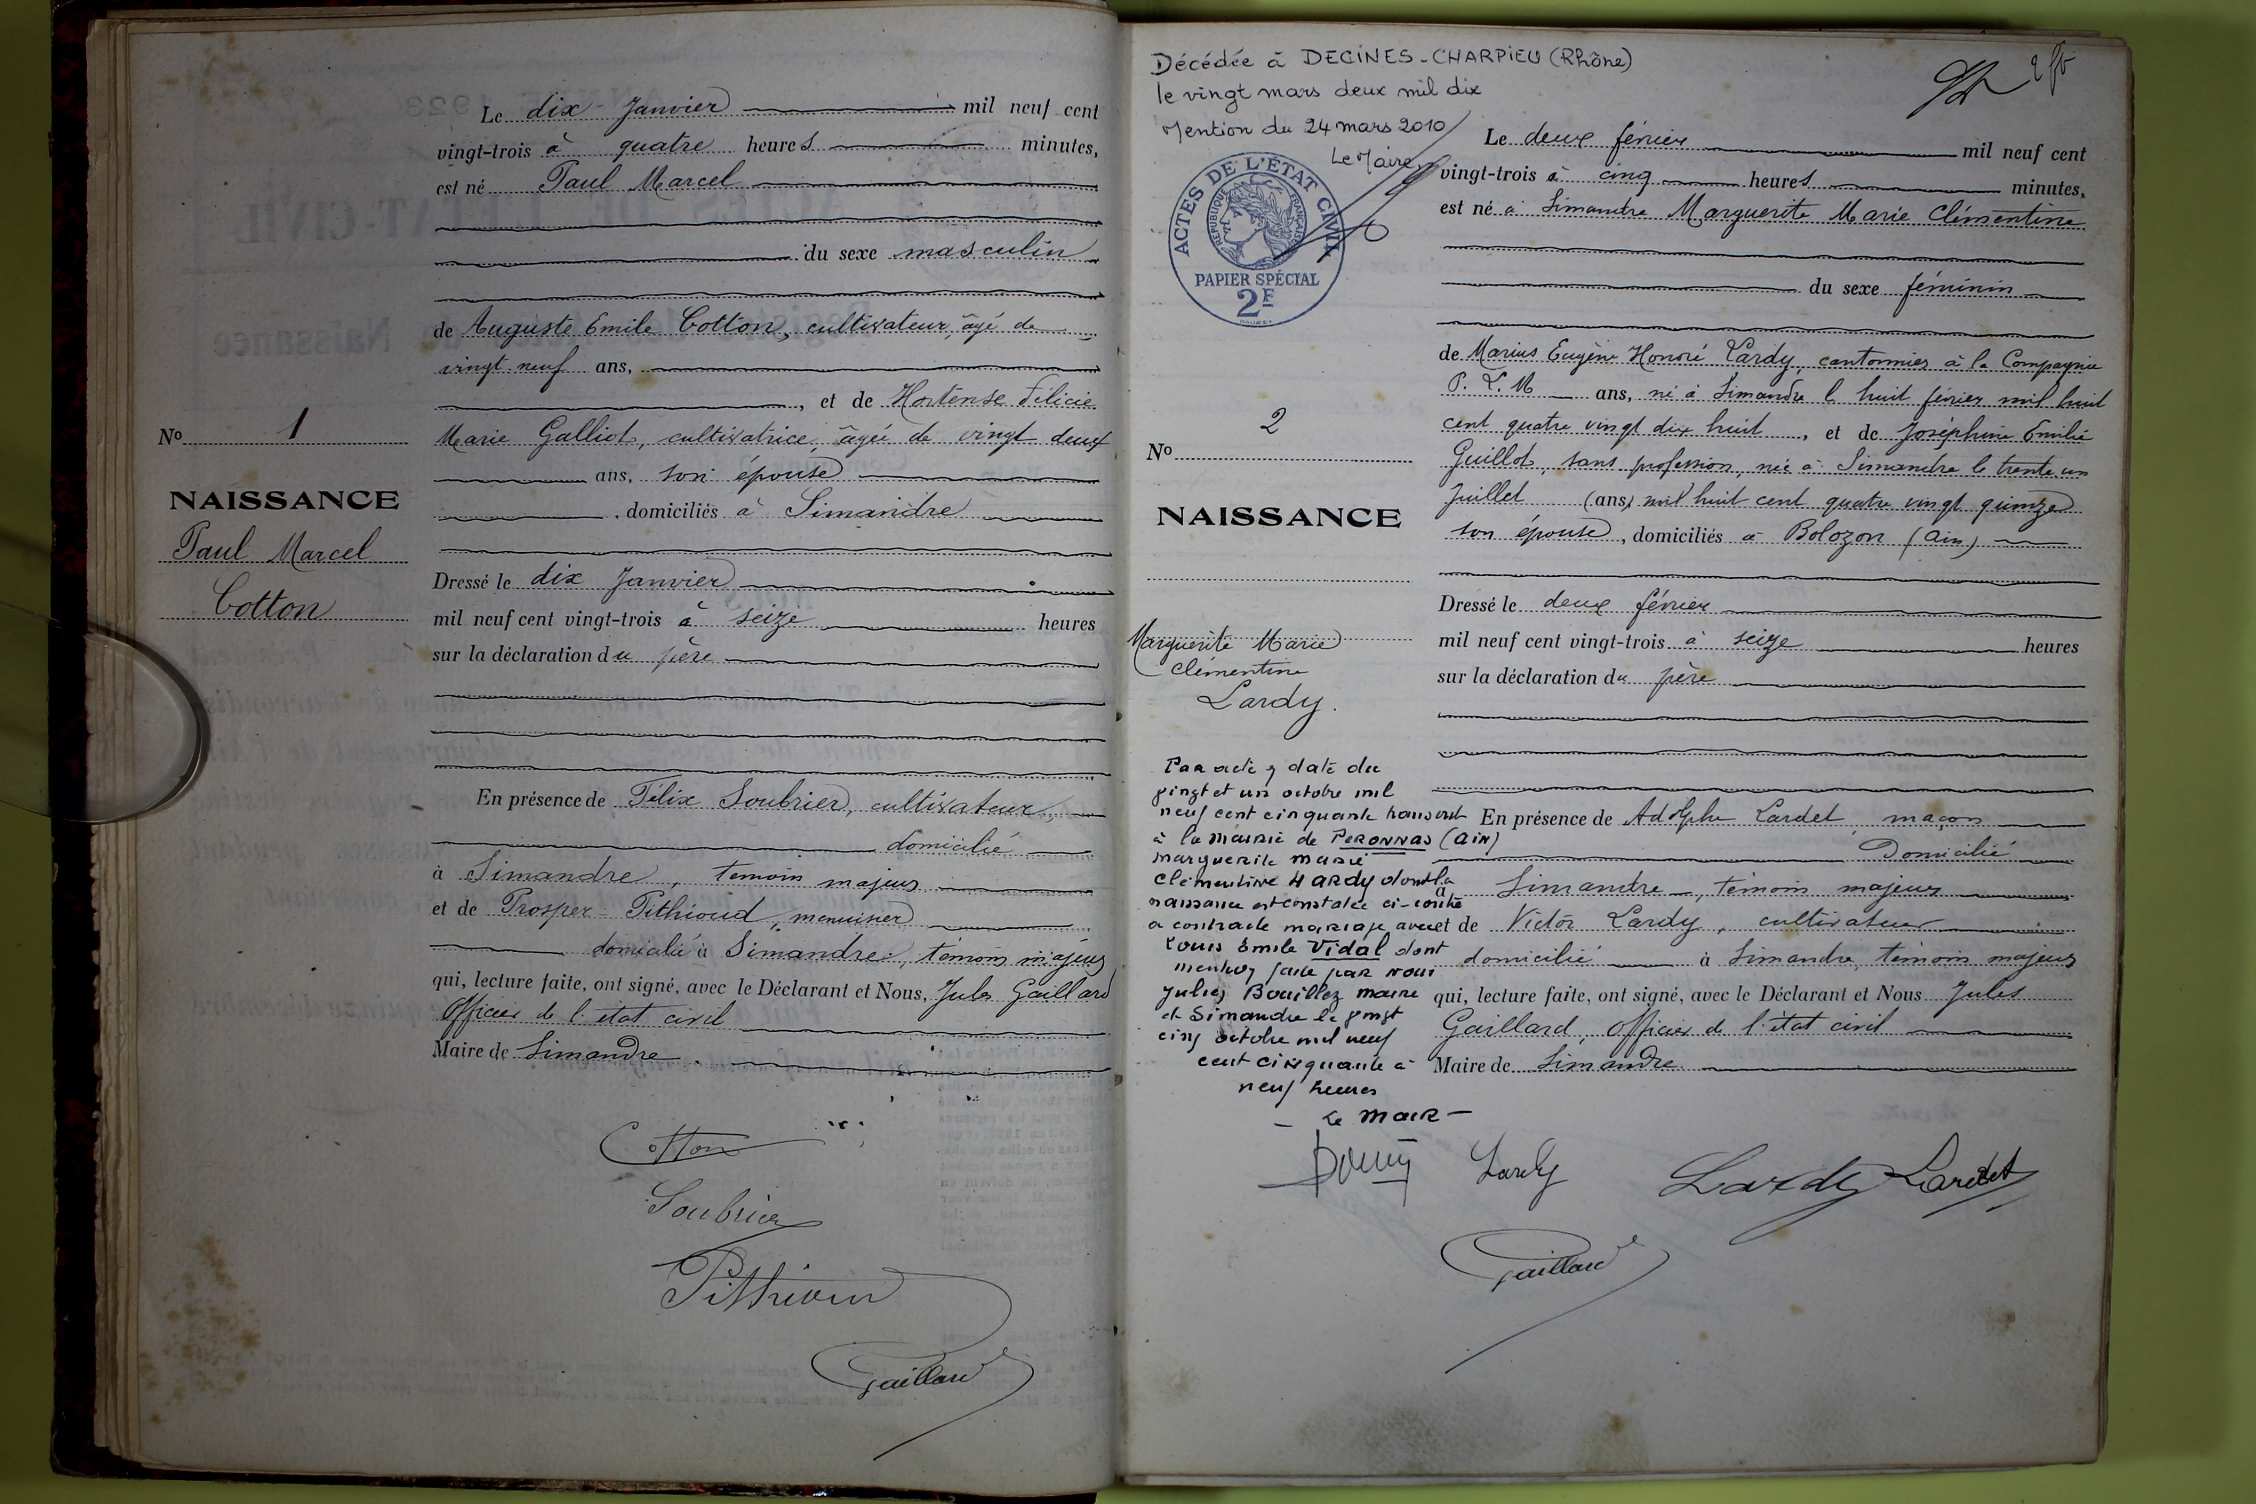 Le dix Janvier mil neuf cent
vingt-trois à quatre heures minutes,
est né Paul Marcel
du sexe masculin
de Auguste Emile Cotton, cultivateur, âgé de
vingt neuf ans,
, et de Hortense Félicie
Marie Galliot, cultivatrice, âgée de vingt deux
ans, son épouse
, domiciliés à Simandre
Dressé le dix Janvier
mil neuf cent vingt-trois à seize heures
sur la déclaration du père
En présence de Félix Soubrier, cultivateur,
domicilié
à Simandre, témoin majeur
et de Prosper Pithioud, menuisier
domicilié à Simandre, témoin majeur
qui, lecture faite, ont signé, avec le Déclarant et Nous, Jules Gaillard
Officier de l'état civil
Maire de Simandre.
No 1
NAISSANCE
Paul Marcel
Cotton
Cotton
Soubrier
Pithioud
Gaillard
Décédée à DECINES-CHARPIEU (Rhône)
le vingt mars deux mil dix
Mention du 24 mars 2010
Le Maire,
ACTES DE L'ÉTAT CIVIL
RÉPUBLIQUE FRANÇAISE
PAPIER SPÉCIAL
2F
No 2
NAISSANCE
Marguerite Marie
Clémentine
Lardy.
Par acte en date du
vingt et un octobre mil
neuf cent cinquante
à la mairie de PERONNAS (AIN)
marguerite marie
clémentine LARDY dont la
naissance est constatée ci-contre
a contracté mariage avec
Louis Emile Vidal dont
mention faite par nous
Julien Bouillez maire
de Simandre le vingt
cinq octobre mil neuf
cent cinquante à
neuf heures
Le maire
Le deux février mil neuf cent
vingt-trois à cinq heures minutes,
est né à Simandre Marguerite Marie Clémentine
du sexe féminin
de Marius Eugène Honoré Lardy, cantonnier à la Compagnie
P. L. M ans, né à Simandre le huit février mil huit
cent quatre vingt dix huit, et de Joséphine Emilie
Guillot, sans profession, née à Simandre le trente un
Juillet (ans) mil huit cent quatre vingt quinze
son épouse, domiciliés à Bolozon (Ain)
Dressé le deux février
mil neuf cent vingt-trois à seize heures
sur la déclaration du père
En présence de Adolphe Lardet, maçon
Domicilié
à Simandre, témoin majeur
et de Victor Lardy, cultivateur
domicilié à Simandre, témoin majeur
qui, lecture faite, ont signé, avec le Déclarant et Nous Jules
Gaillard, officier de l'état civil
Maire de Simandre
Lardy Lardy Lardet
Gaillard